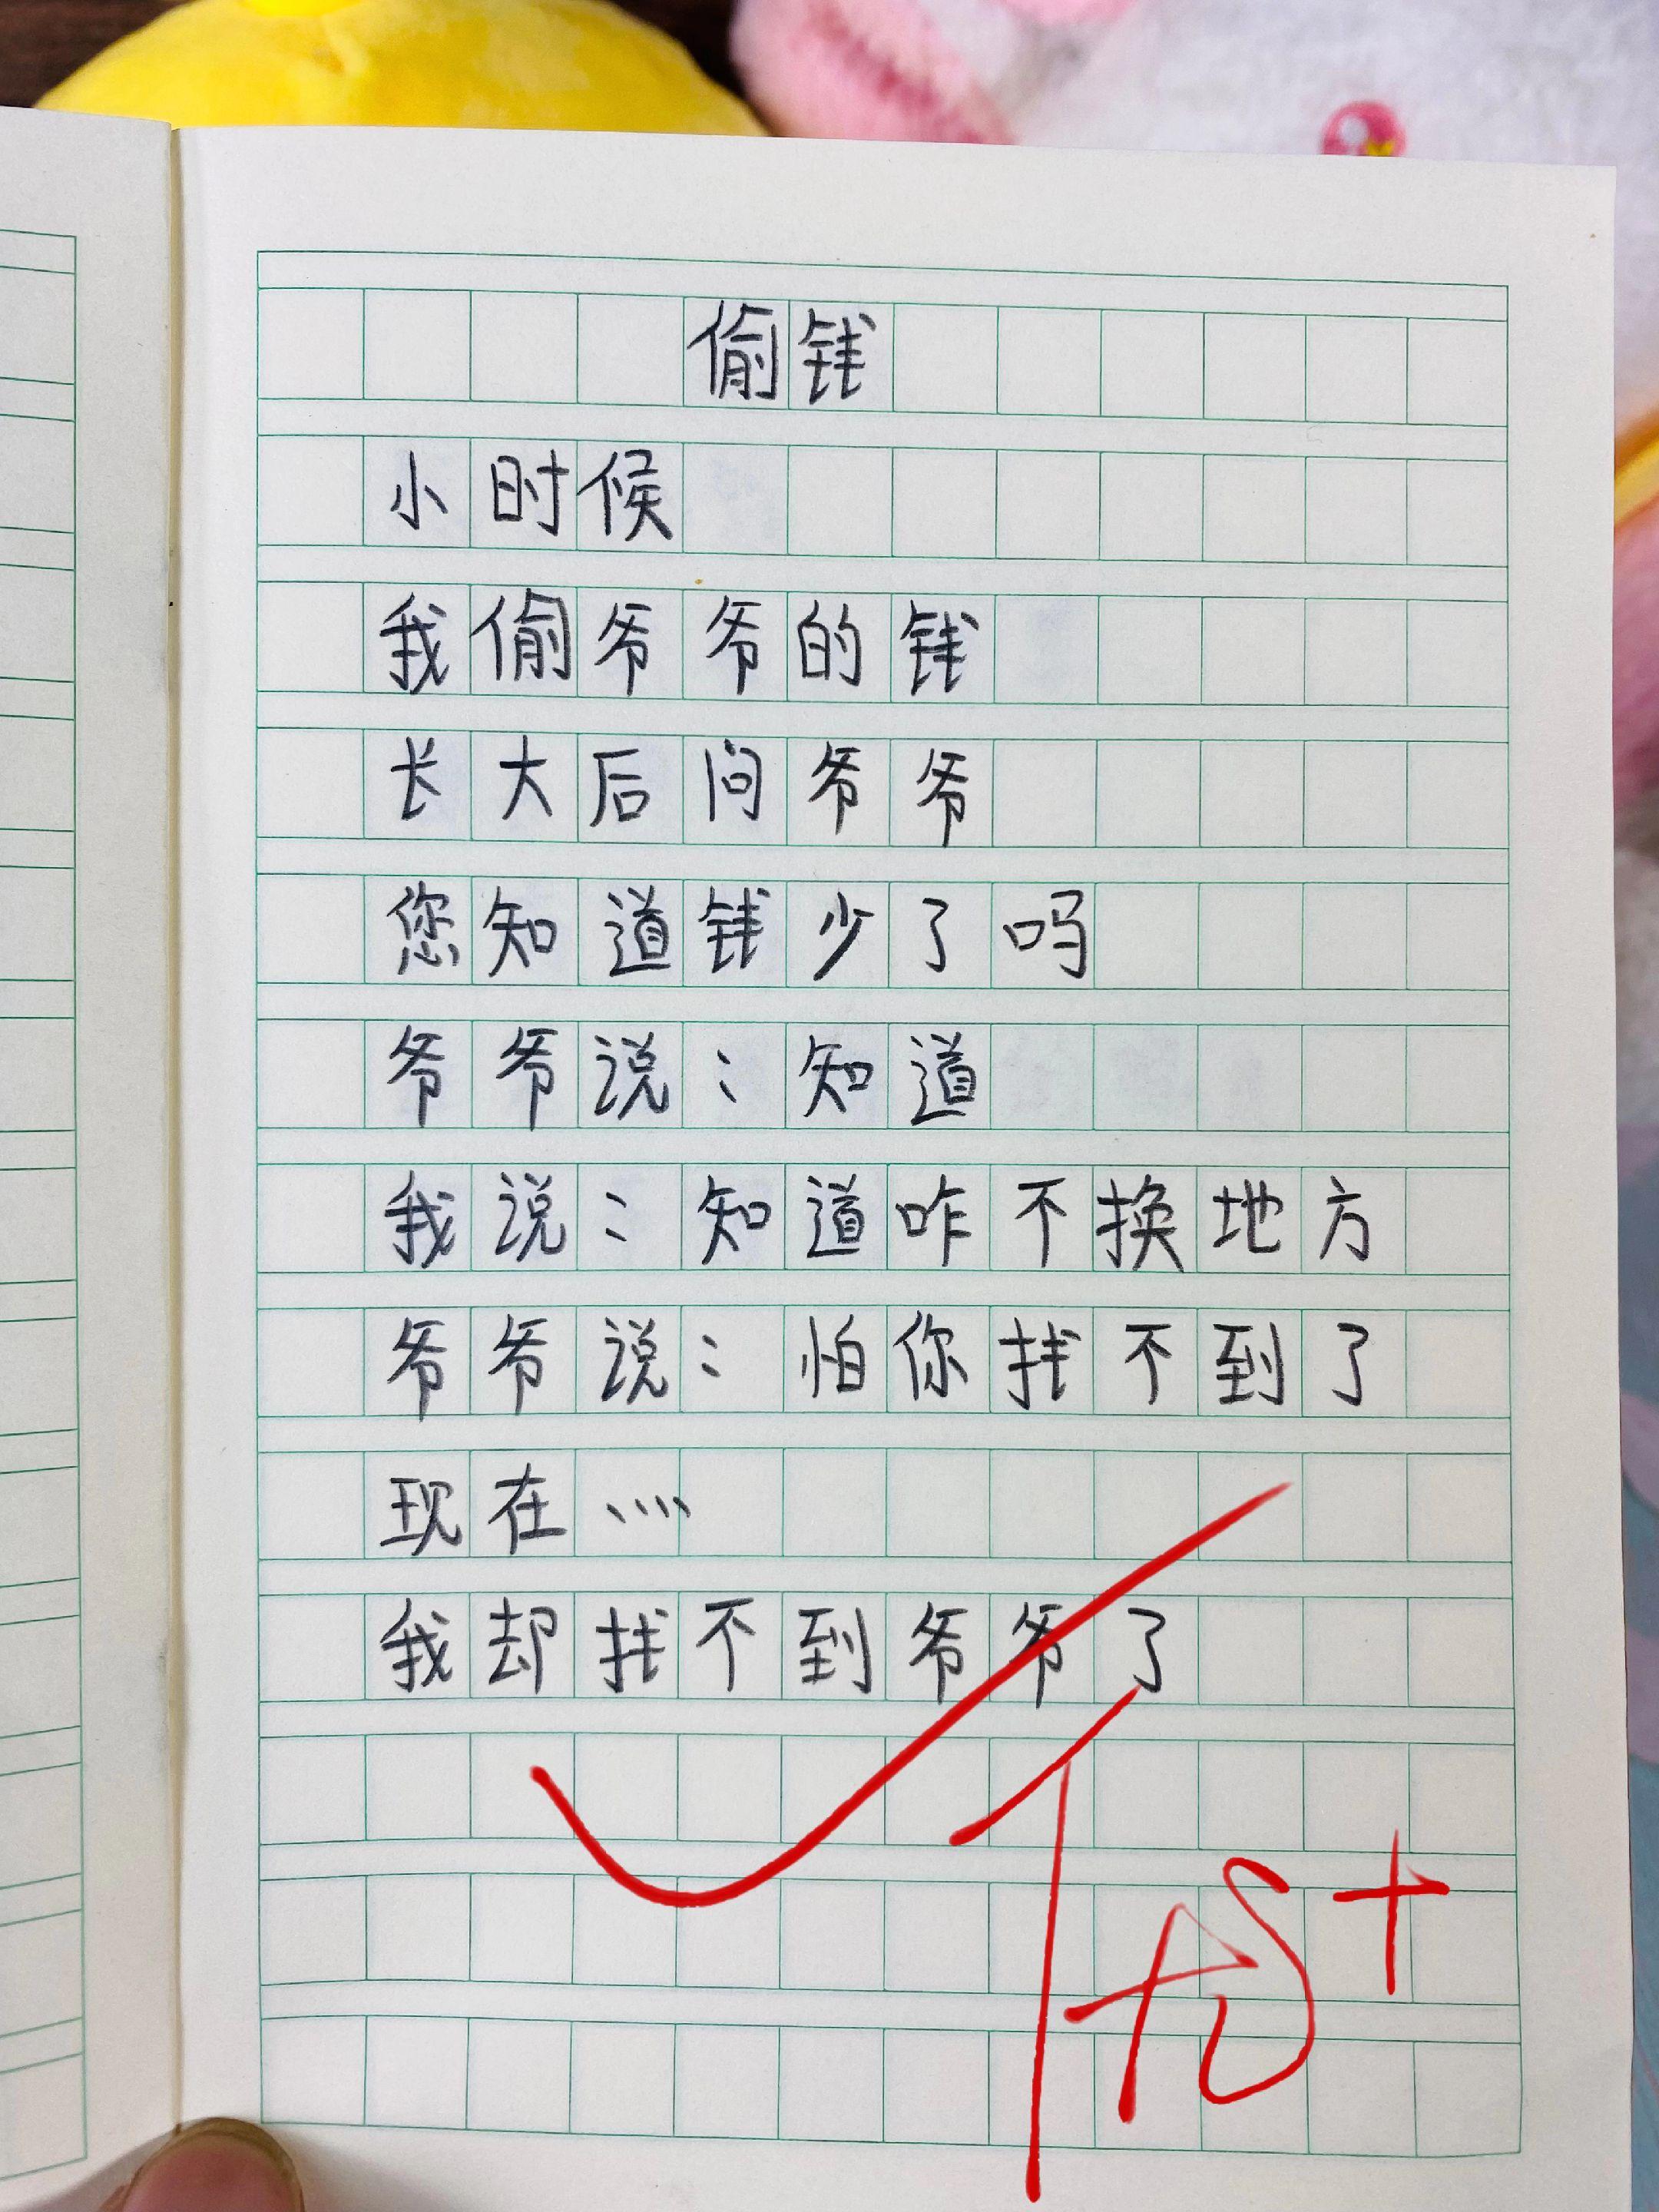 偷钱
小时候
我偷爷爷的钱
长大后问爷爷
您知道钱少了吗
爷爷说：知道
我说：知道咋不换地方
爷爷说：怕你找不到了
现在……
我却找不到爷爷了
优+